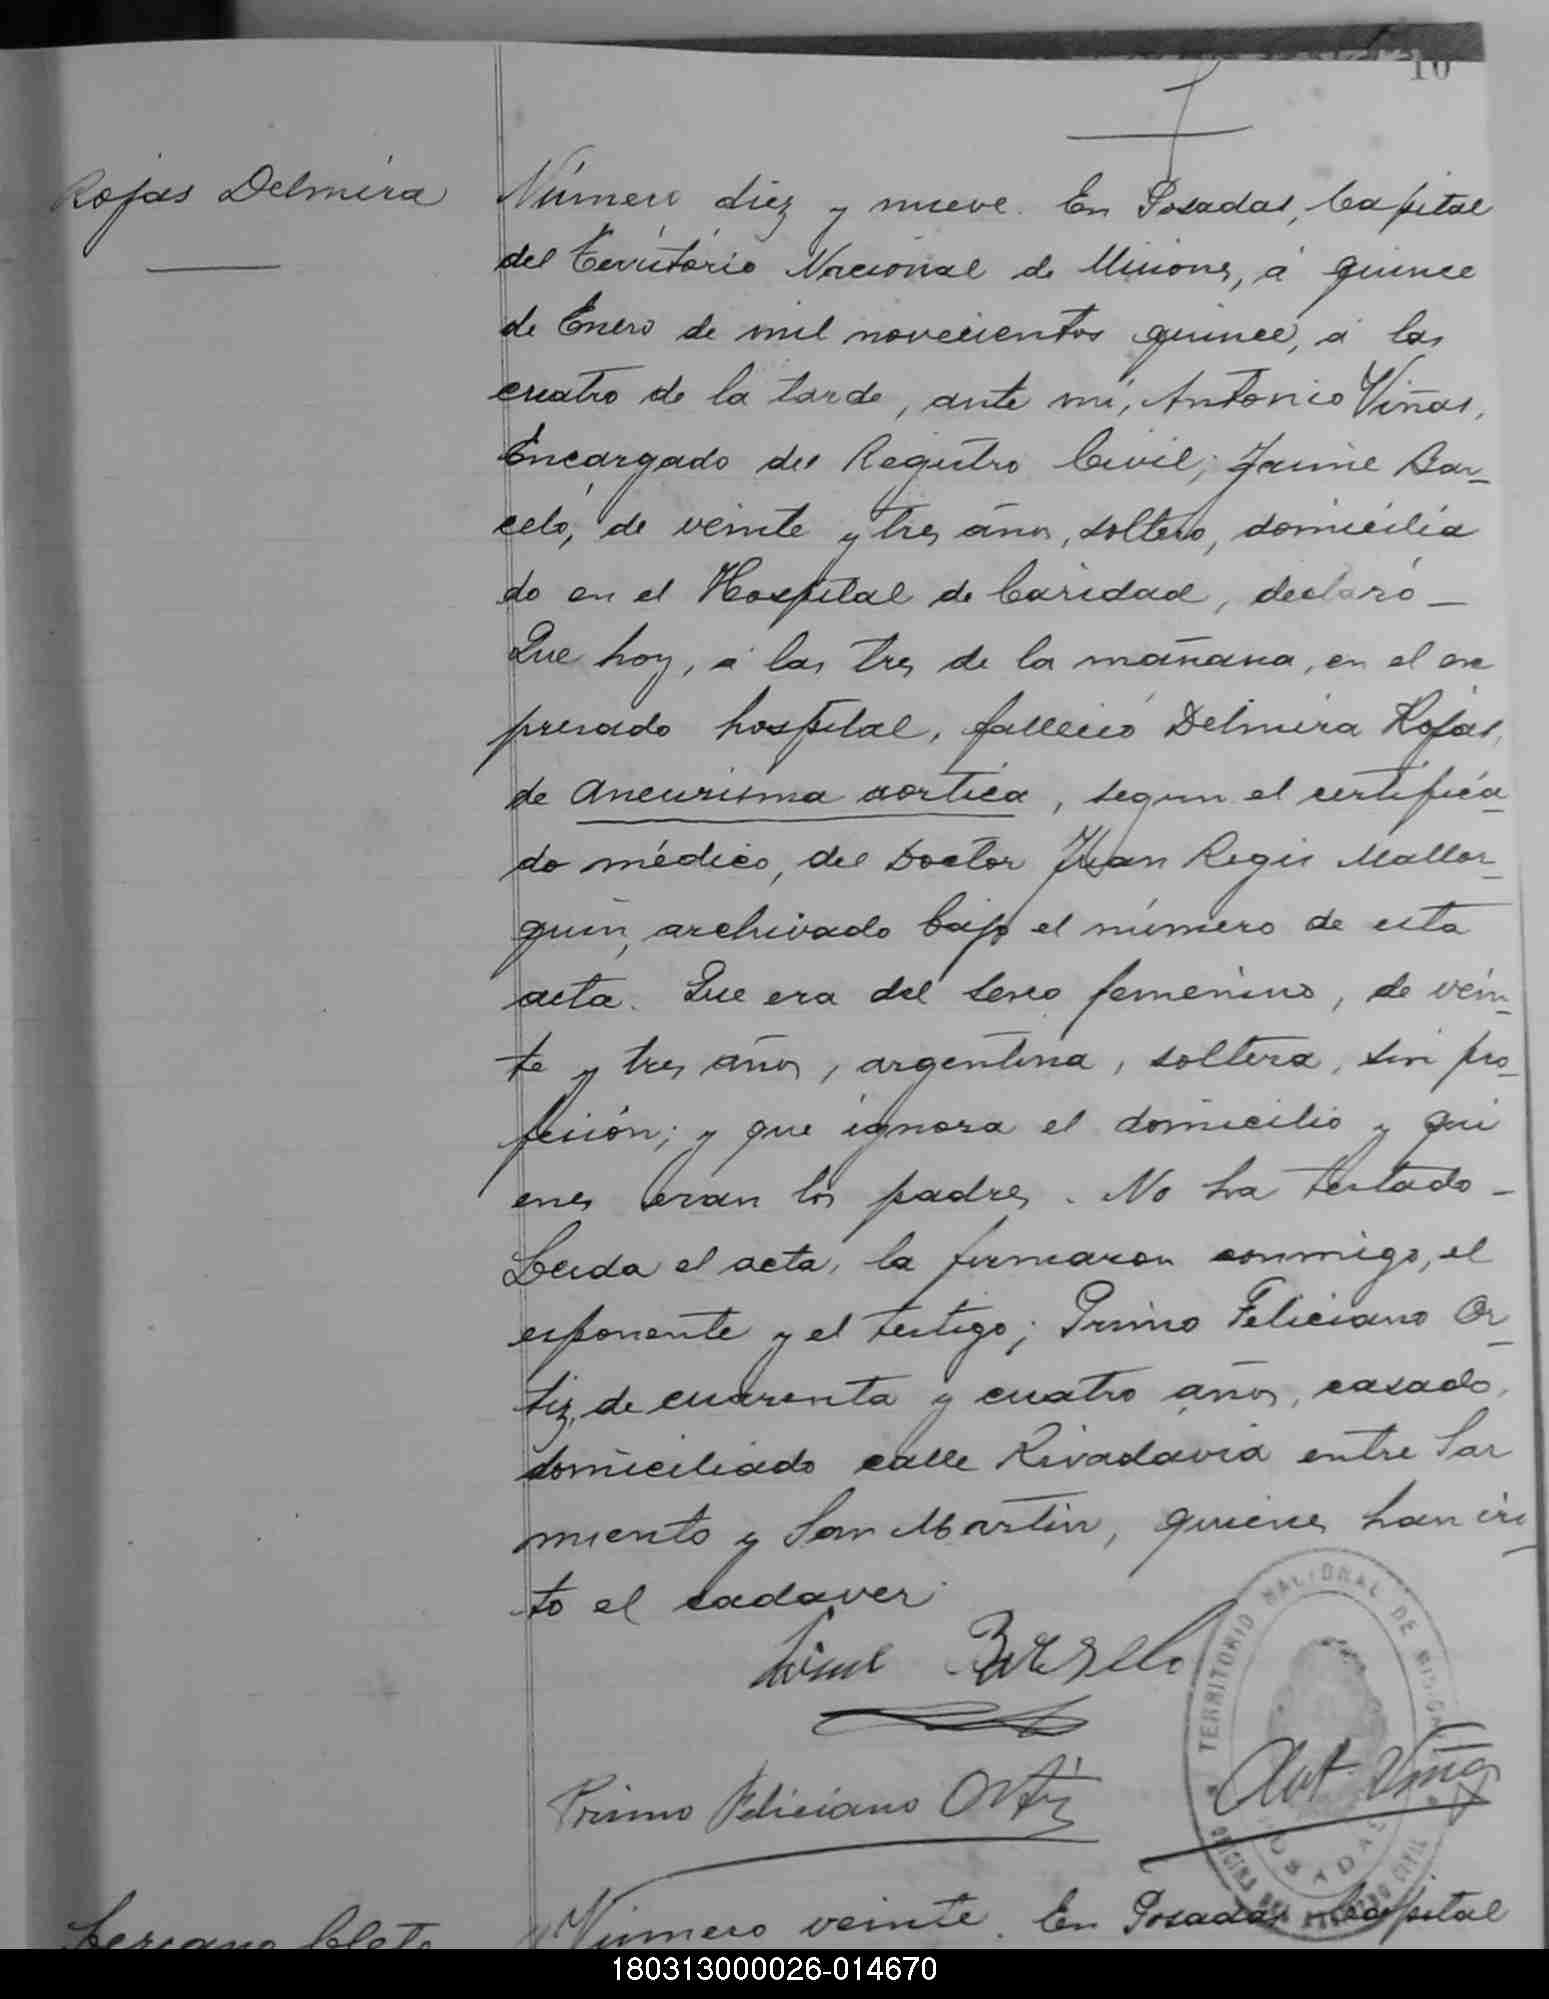 10
Rojas Delmira
Número diez y nueve. En Posadas, Capital
del Territorio Nacional de Misiones, á quince
de Enero de mil novecientos quince, á las
cuatro de la tarde, ante mí, Antonio Viñas,
Encargado del Registro Civil; Jaime Bar-
celó, de veinte y tres años, soltero, domicilia
do en el Hospital de Caridad, declaró-
Que hoy, á las tres de la mañana, en el ex
presado hospital, falleció Delmira Rojas,
de aneurisma aortica, segun el certifica-
do médico, del Doctor Juan Regis Mallor-
quin, archivado bajo el número de esta
acta. Que era del sexo femenino, de vein-
te y tres años, argentina, soltera, sin pro-
fesión; y que ignora el domicilio y qui
enes eran los padres. No ha testado-
Leida el acta, la firmaron conmigo, el
esponente y el testigo; Primo Feliciano Or-
tiz, de cuarenta y cuatro años, casado,
domiciliado calle Rivadavia entre Sar
miento y San Martin, quienes han vis-
to el cadaver.
Jaime Barcelo
TERRITORIO NACIONAL DE MISIONES
OFICINA DEL REGISTRO CIVIL
POSADAS
Ant. Viñas
Primo Feliciano Ortiz
Número veinte. En Posadas, Capital
180313000026-014670